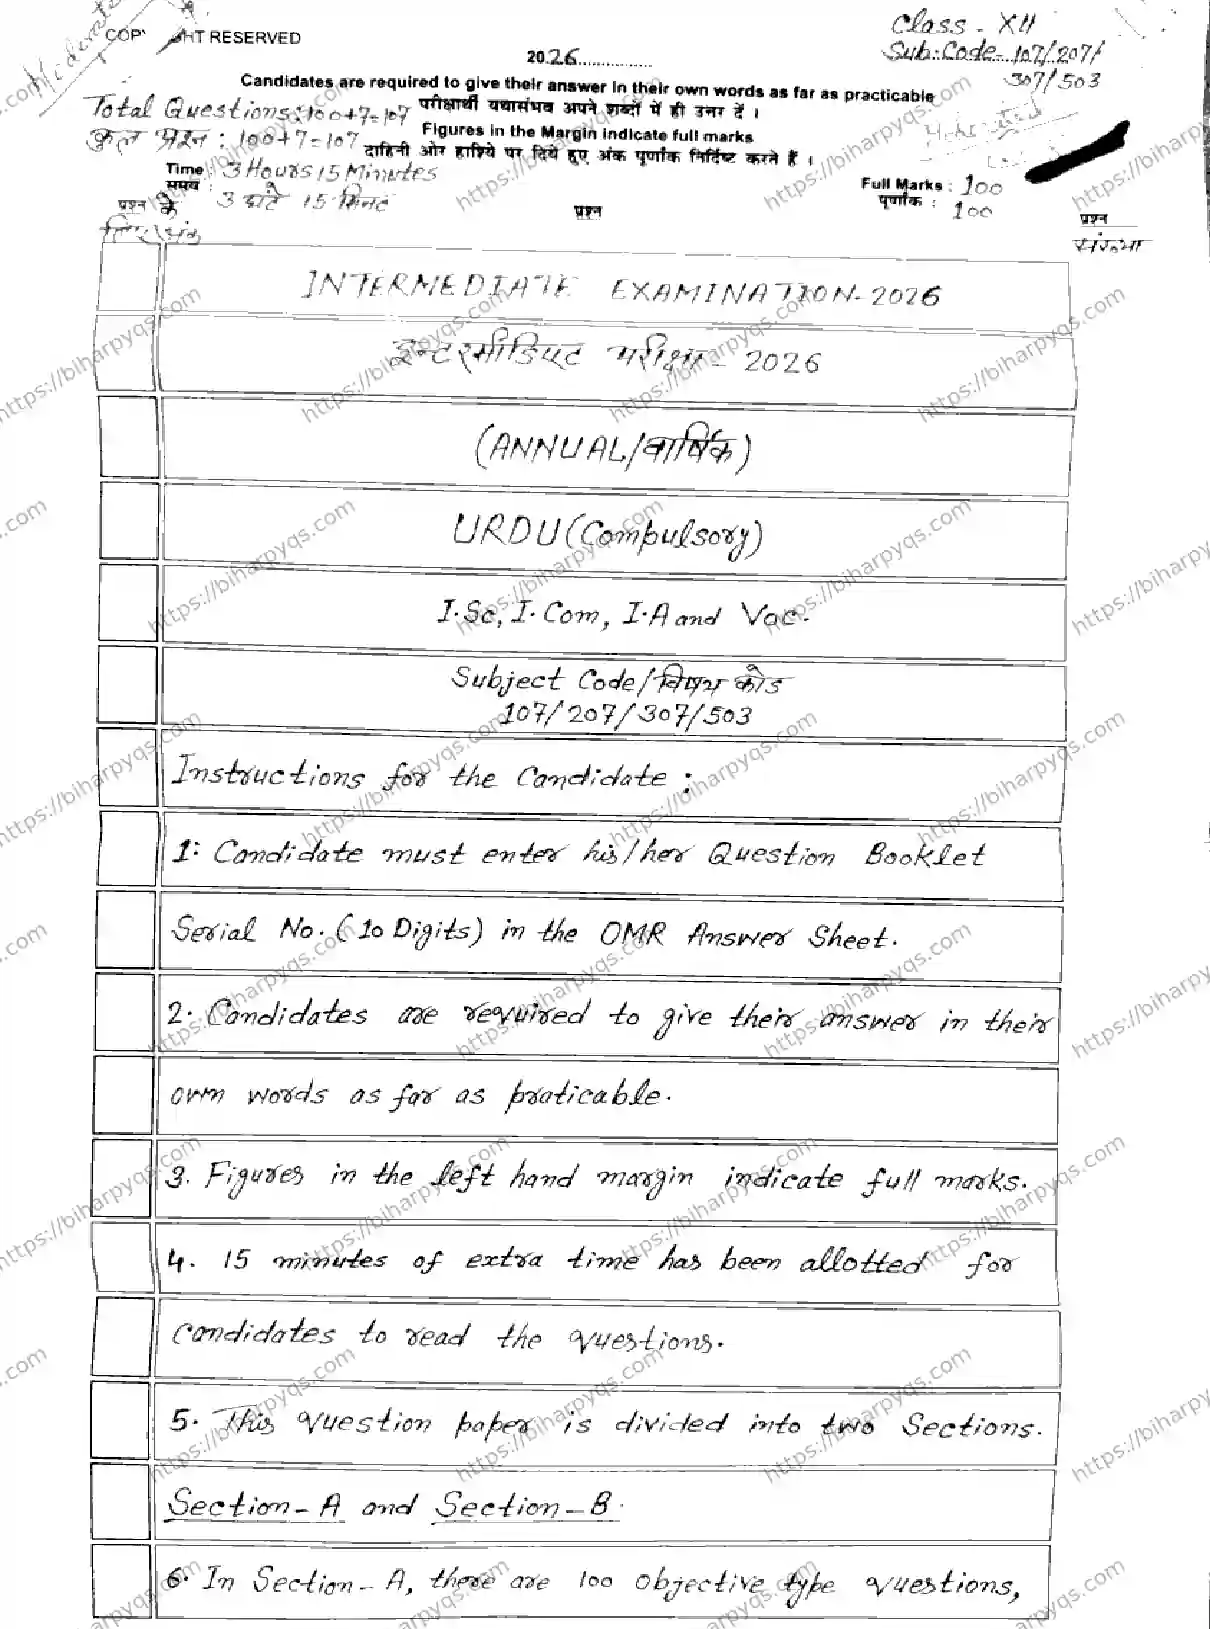 COPY HT RESERVED
Class - XII
Sub: Code - 107/207/
307/503
2026................
Candidates are required to give their answer in their own words as far as practicable
परीक्षार्थी यथासंभव अपने शब्दों में ही उत्तर दें ।
Total Questions: 100+7=107
Figures in the Margin indicate full marks
कुल प्रश्न : 100+7=107
दाहिनी ओर हाशिये पर दिये हुए अंक पूर्णांक निर्दिष्ट करते हैं ।
Time : 3 Hours 15 Minutes
समय : 3 घंटे 15 मिनट
Full Marks : 100
पूर्णांक : 100
प्रश्न के
प्रश्न
प्रश्न
लिए अंक
संख्या
INTERMEDIATE EXAMINATION-2026
इन्टरमीडिएट परीक्षा - 2026
(ANNUAL/वार्षिक)
URDU (Compulsory)
I.Sc, I.Com, I.A and Voc.
Subject Code/विषय कोड
107/207/307/503
Instructions for the Candidate :
1: Candidate must enter his/her Question Booklet
Serial No. (10 Digits) in the OMR Answer Sheet.
2. Candidates are required to give their answer in their
own words as far as praticable.
3. Figures in the left hand margin indicate full marks.
4. 15 minutes of extra time has been allotted for
candidates to read the questions.
5. This question paper is divided into two Sections.
Section-A and Section-B.
6. In Section-A, there are 100 objective type questions,
https://biharpyqs.com